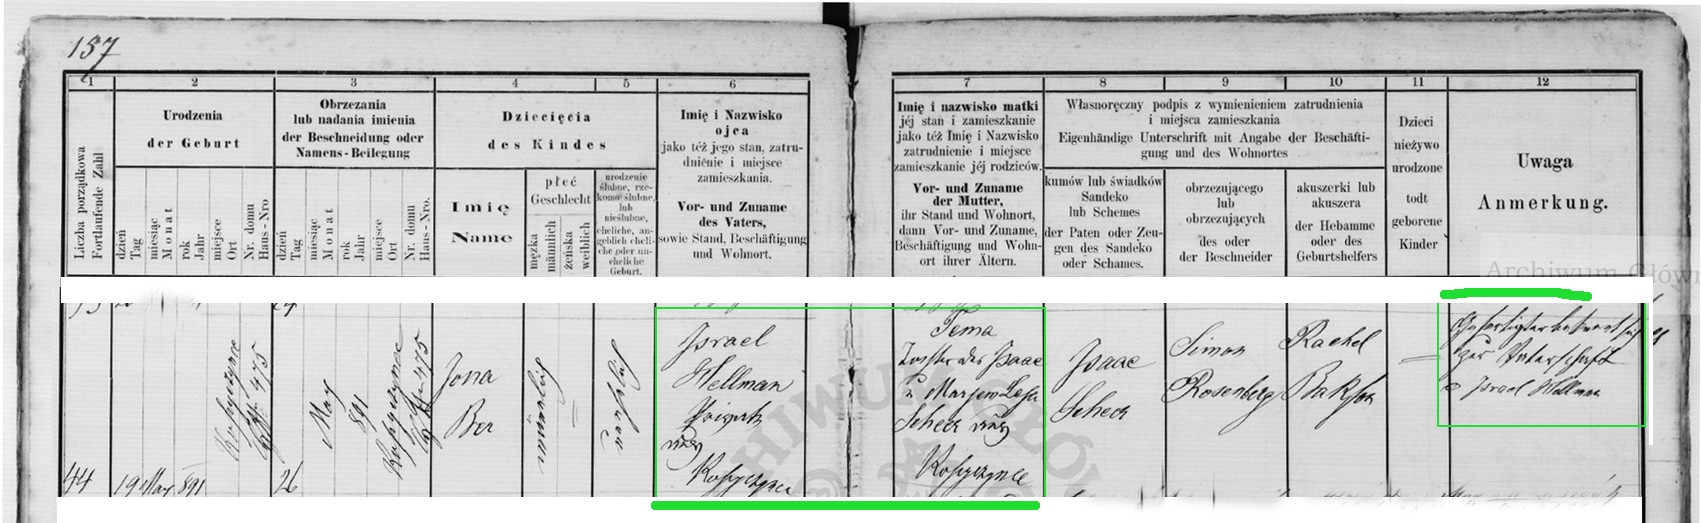 157
1
2
3
4
5
6
7
8
9
10
11
12
Liczba porządkowa
Fortlaufende Zahl
Urodzenia
der Geburt
dzień
Tag
miesiąc
Monat
rok
Jahr
miejsce
Ort
Nr. domu
Haus-Nro
Obrzezania
lub nadania imienia
der Beschneidung oder
Namens-Beilegung
dzień
Tag
miesiąc
Monat
rok
Jahr
miejsce
Ort
Nr. domu
Haus-Nro.
Dziecięcia
des Kindes
Imię
Name
płeć
Geschlecht
męzka
männlich
żeńska
weiblich
urodzenie
ślubne, rze-
komo ślubne,
lub
nieślubne,
eheliche, an-
geblich eheli-
che oder un-
eheliche
Geburt.
Imię i Nazwisko
ojca
jako téż jego stan, zatru-
dnienie i miejsce
zamieszkania.
Vor- und Zuname
des Vaters,
sowie Stand, Beschäftigung
und Wohnort.
Imię i nazwisko matki
jéj stan i zamieszkanie
jako téż Imię i Nazwisko
zatrudnienie i miejsce
zamieszkanie jéj rodziców.
Vor- und Zuname
der Mutter,
ihr Stand und Wohnort,
dann Vor- und Zuname,
Beschäftigung und Wohn-
ort ihrer Ältern.
Własnoręczny podpis z wymienieniem zatrudnienia
i miejsca zamieszkania
Eigenhändige Unterschrift mit Angabe der Beschäfti-
gung und des Wohnortes
kumów lub świadków
Sandeko
lub Schemes
der Paten oder Zeu-
gen des Sandeko
oder Schames.
obrzezującego
lub
obrzezujących
des oder
der Beschneider
akuszerki lub
akuszera
der Hebamme
oder des
Geburtshelfers
Dzieci
nieżywo
urodzone
todt
geborene
Kinder
Uwaga
Anmerkung.
Archiwum Główn
May
891
475
Jona
Ber
männlich
Israel
Wellman
Privat
Kopyczynce
Tema
Tochter des Isaac
u Marjem Lea
Scheer
Kopyczynce
Isaac
Scheer
Simon
Rosenberg
Rachel
zur Vaterschaft
Israel Wellman
44
19 May 891
26